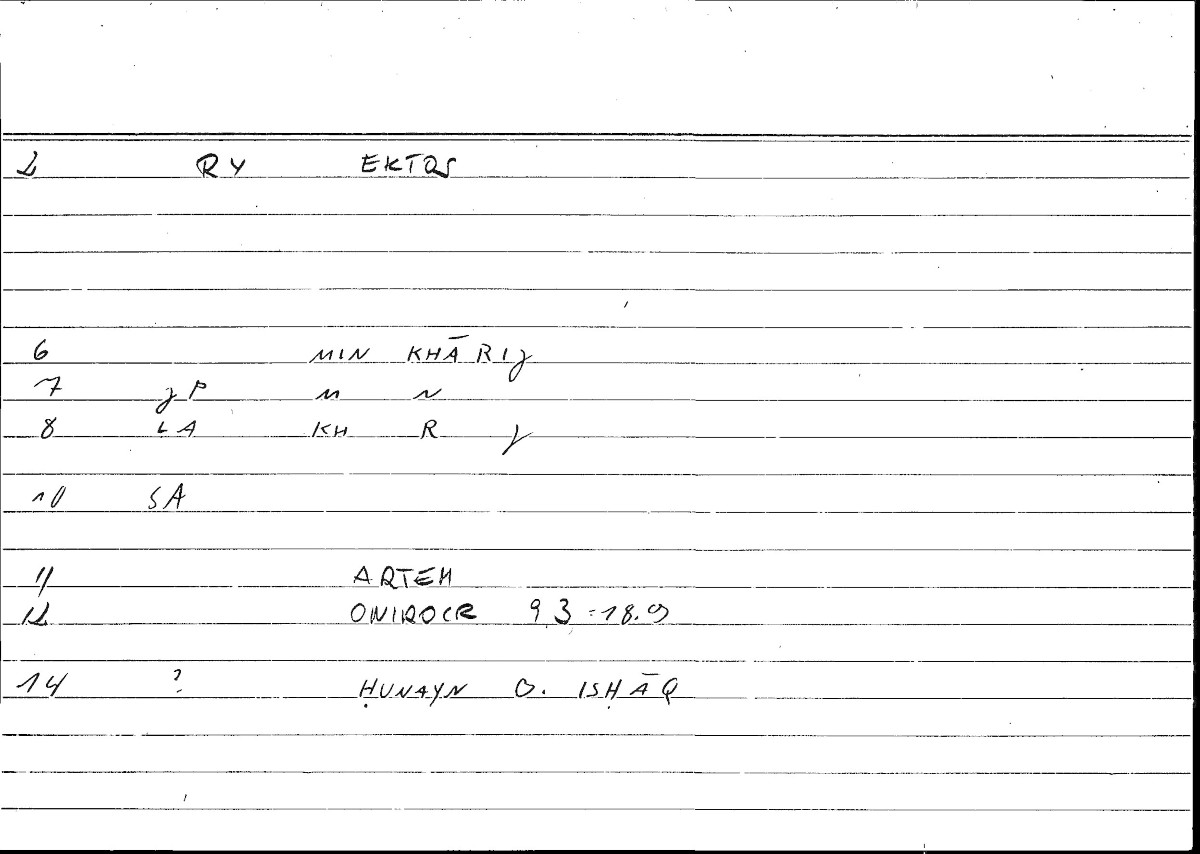 2 RY EKTOS
6 MIN KHĀRIJ
7 JP M N
8 LA KH R J
10 SA
11 ARTEM
12 ONIROCR 93 =18.9
14 ? ḤUNAYN B. ISḤĀQ